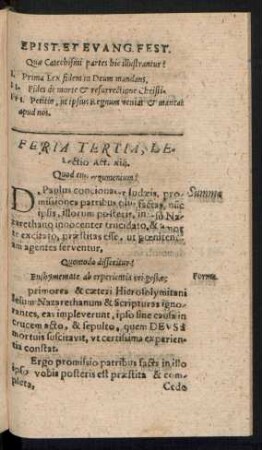 EPIST. ET EVANG. FEST.
Quæ Catechismi partes hic illustrantur?
I. Prima Lex fidem in Deum mandans.
II. Fides de morte & resurrectione Christi.
III. Petitio, ut ipsius Regnum veniat & maneat
apud nos.
FERIA TERTIA, LE-
ctio Act. xiii.
Quod argumentum?
D. Paulus concionatur Iudæis, pro-
Summa
missiones patribus suis factas, nunc
ipsis, illorum posteris, in Iesu Na-
zarethano innocenter trucidato, & à mor-
te excitato, præstitas esse, ut pœniten-
tiam agentes serventur.
Quomodo disseritur?
Enthymemate ab experientia rei gestæ:
Forma
primores & cæteri Hierosolymitani
Iesum Nazarethanum & Scripturas igno-
rantes, eas impleverunt, ipso sine causa in
crucem acto, & sepulto, quem DEUS à
mortuis suscitavit, ut certissima experien-
tia constat.
Ergo promissio patribus facta in illo
ipso vobis posteris est præstita & com-
pleta,
Cedo